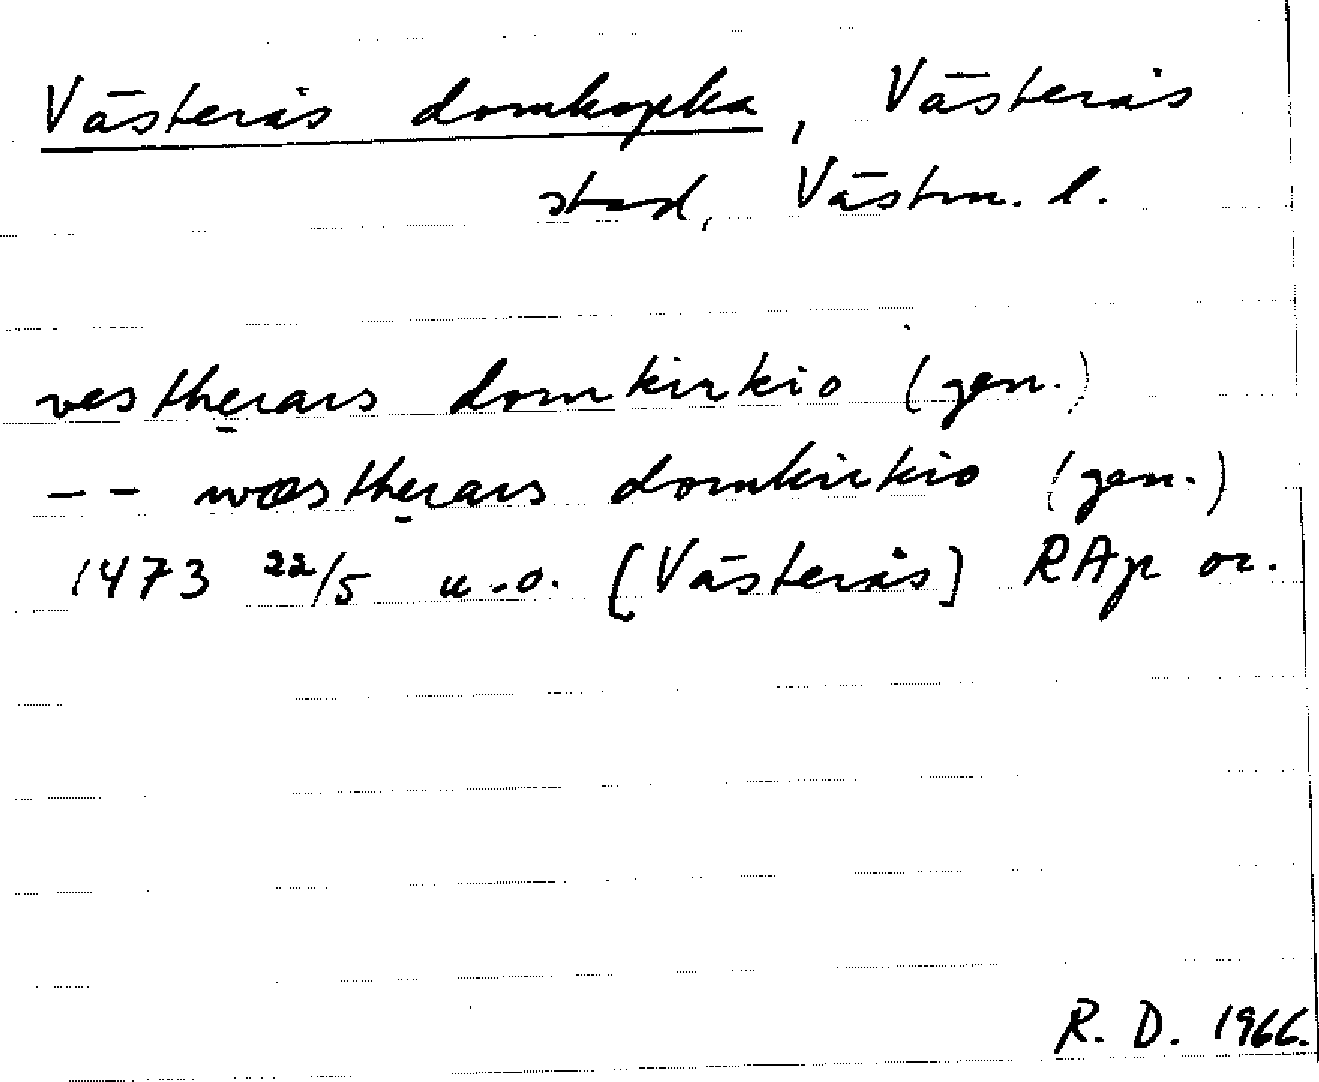 Västerås domkyrka, Västerås
stad, Västm. l.
vesthẹrars domkirkio (gen.)
-- wæsthẹrars domkirkio (gen.)
1473 22/5 u.o. [Västerås] RAp or.
R. D. 1966.